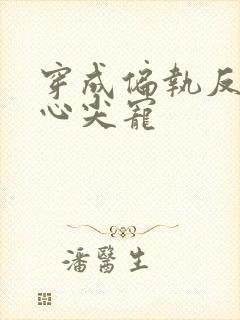 穿成偏執反
心尖寵
潘醫生